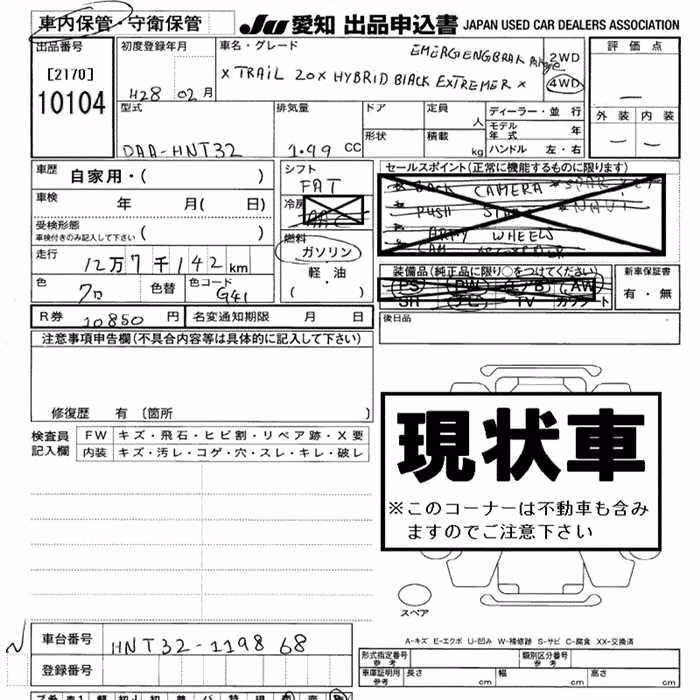 車内保管・守衛保管 JU 愛知 出品申込書 JAPAN USED CAR DEALERS ASSOCIATION
出品番号 初度登録年月 車名・グレード 評価点
EMERGENGBRAK
[2170] X TRAIL 20X HYBRID BlACK EXTREMER X 2WD
10104 H28 02月 4WD
外装 内装
型式 排気量 ドア 定員 人 ディーラー・並行
モデル年式 年
形状 積載 kg ハンドル 左・右
DAA-HNT32 1.99 CC
車歴 自家用・( ) シフト セールスポイント(正常に機能するものに限ります)
FAT
車検 年 月( 日) 冷房 AAC BACK CAMERA
PUSH NAVI
受検形態 ( ) WHEELS
車検付きのみ記入して下さい
燃料
走行 12万7千142km ガソリン
軽・油
( )
装備品(純正品に限り○をつけてください) 新車保証書
色 クロ 色替 色コード G41 PS PW エアB AW 有・無
SR ナビ TV カワシート
R券 10850円 名変通知期限 月 日 後日品
注意事項申告欄(不具合内容等は具体的に記入して下さい)
修復歴 有 [箇所 ]
現状車
※このコーナーは不動車も含みますのでご注意下さい
検査員記入欄 FW キズ・飛石・ヒビ割・リペア跡・X要
内装 キズ・汚レ・コゲ・穴・スレ・キレ・破レ
スペア
車台番号 HNT32-119868
A-キズ E-エクボ U-凹み W-補修跡 S-サビ C-腐食 XX-交換済
登録番号
形式指定番号 参考 類別区分番号 参考
車庫証明用 参考 長さ cm 幅 cm 高さ cm